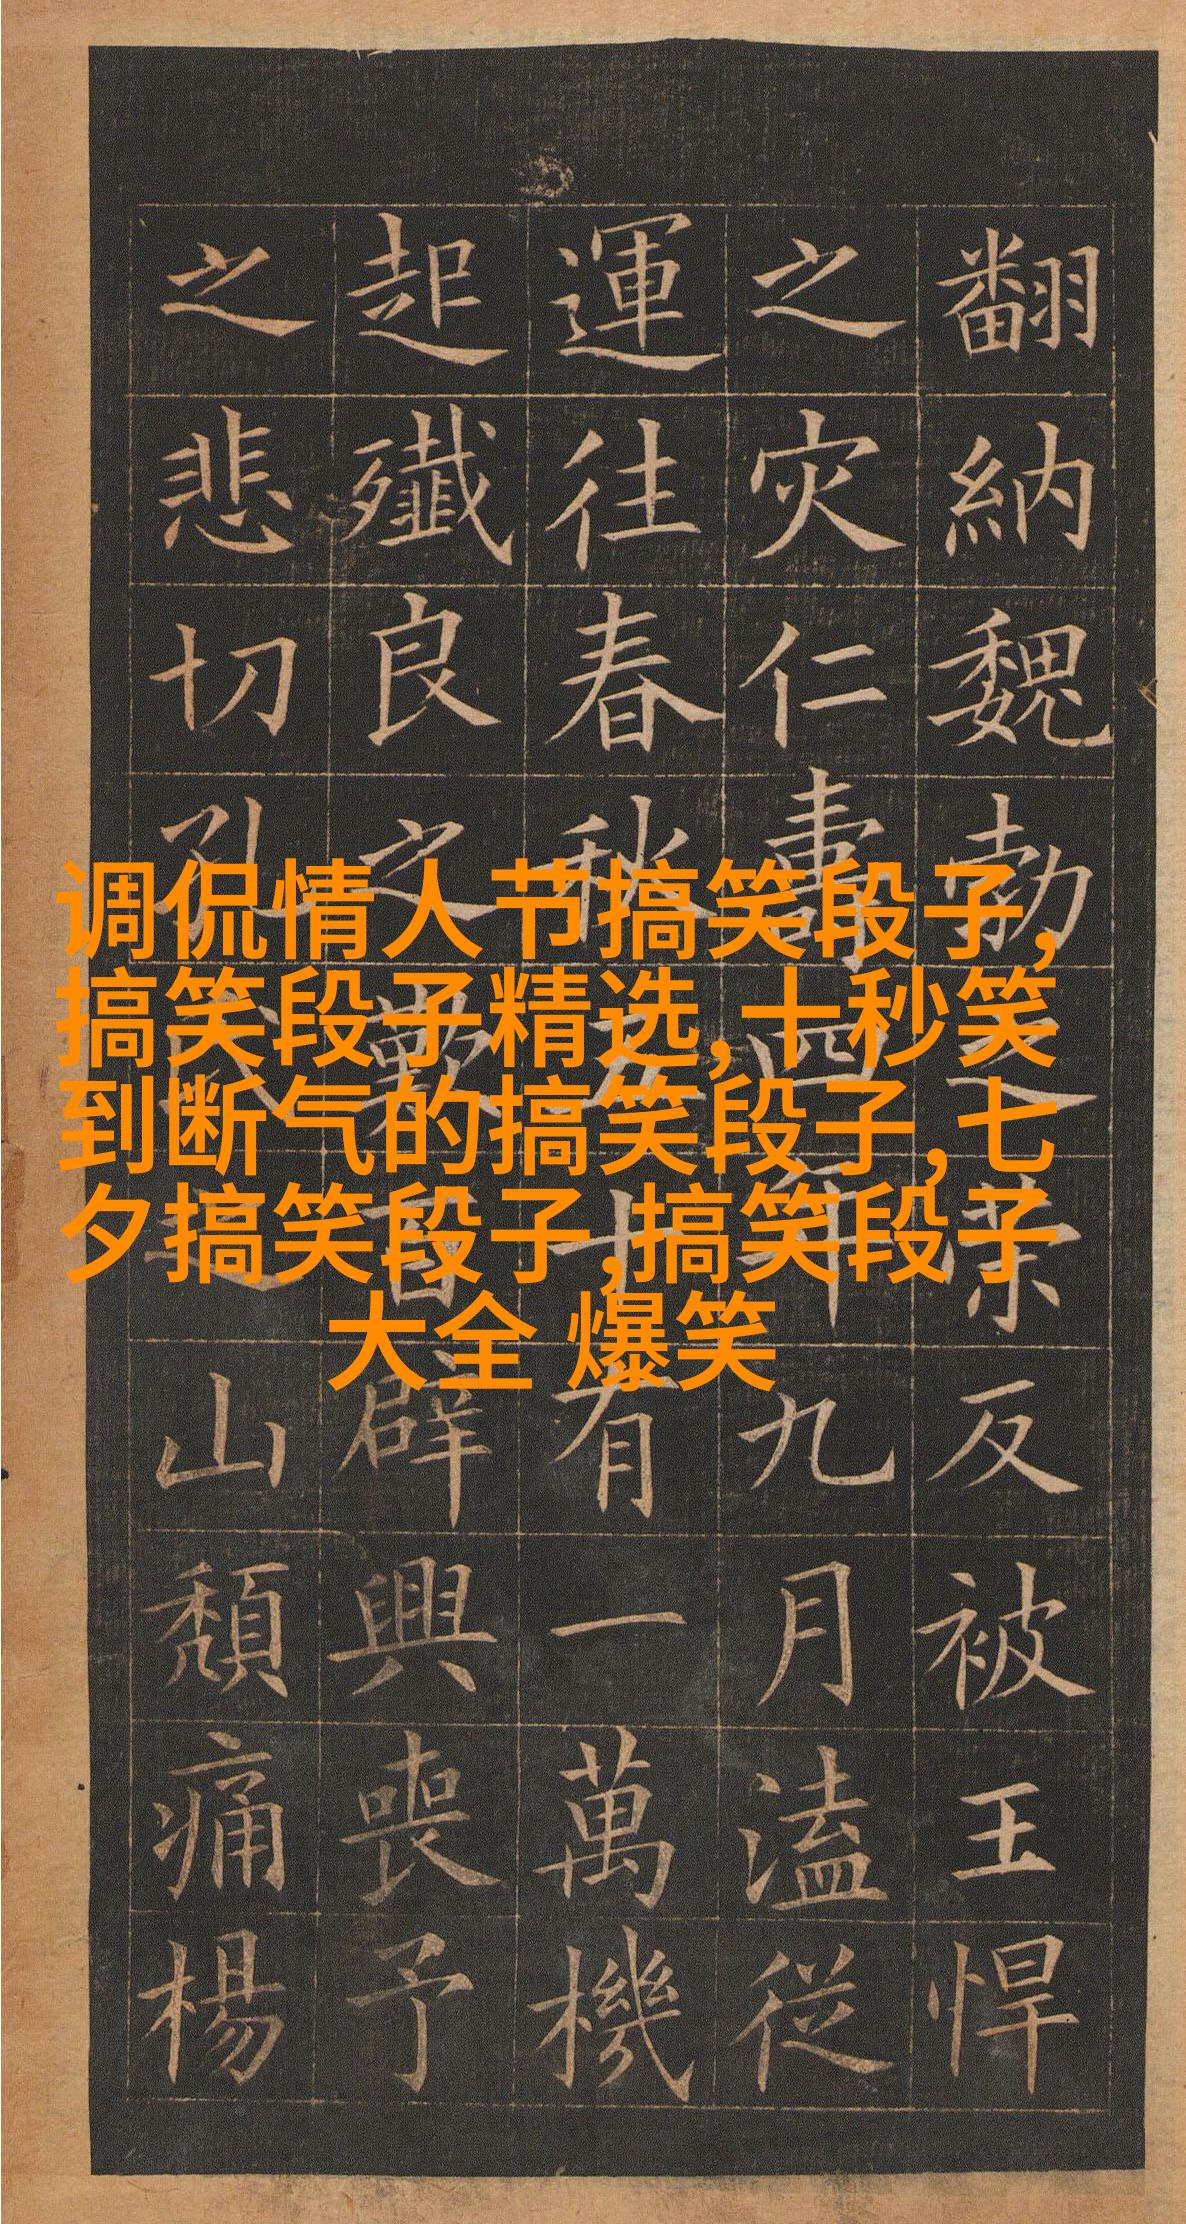 翻納魏勃之反被王悍
之灾仁壽四年九月溘從
運往春秋五十有一萬機
起殲良之歎百辟興喪予
之悲切孔氏之山頹痛楊
调侃情人节搞笑段子,
搞笑段子精选,十秒笑
到断气的搞笑段子,七
夕搞笑段子,搞笑段子
大全 爆笑